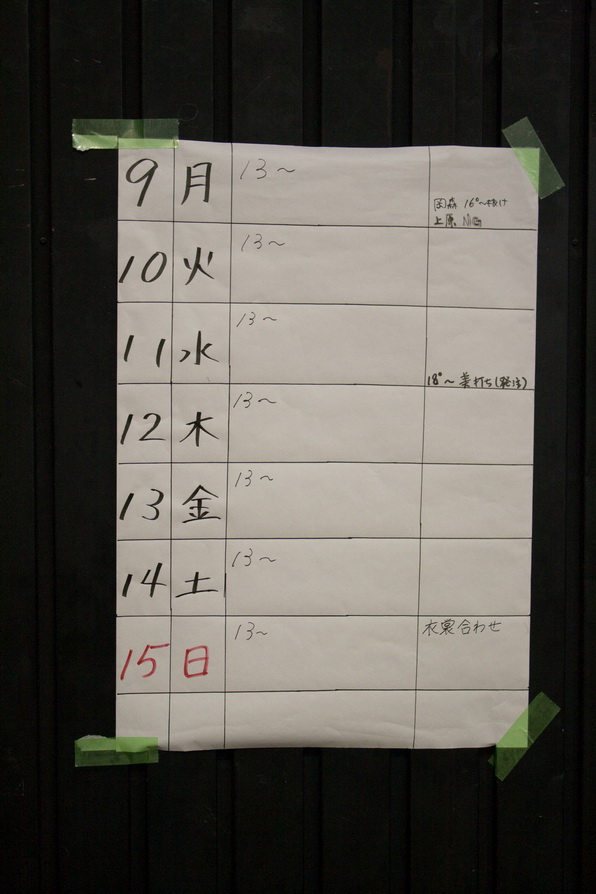 9 月 13〜
岡森 16°〜抜け
上原 NG
10 火 13〜
11 水 13〜
18°〜 美打ち
12 木 13〜
13 金 13〜
14 土 13〜
15 日 13〜 衣裳合わせ